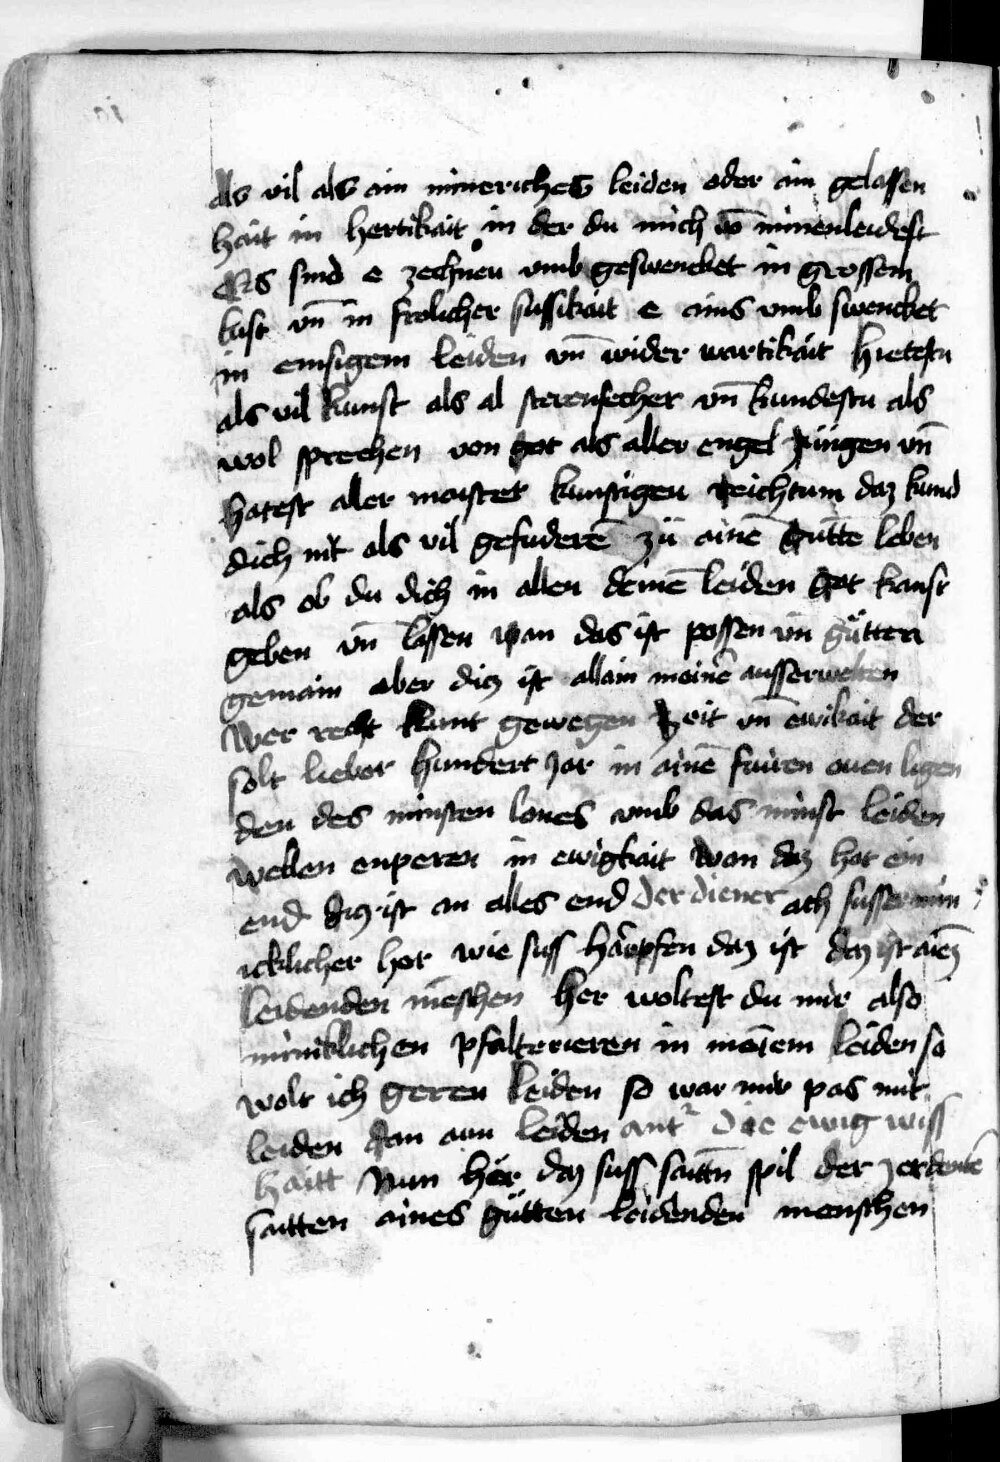 als vil als ain minericheS leiden oder ain gelassen
hait in hertikait in der du mich vō minen leidest
ES sind e zechnen vmb geswencket in grossem
lust vn̄ in frolicher sussikait e ains vmb swencket
in emsigem leiden vn̄ wider wartikait hietestu
als vil kunst als al sterensecher vn̄ kundestu als
wol sprechen von got als aller engel zungen vn̄
hatest aller maister kunstigen reichtum daz kund
dich nit als vil gefuderē zü ainē gūtte leben
als ob du dich in allen deinē leiden got kanst
geben vn̄ lassen wan das ist possen vn gütten
gemain aber diz ist allain meinē ausserwelten
Wer recht kunt gewegen zeit vn̄ ewikait der
solt lieber hundert jar in ainē fairen ouen ligen
den des minsten lones vmb das minst leiden
wellen enperen in ewigkait wan daz hot ein
end diz ist an alles end Der diener ach susser min
icklicher her wie suss härpfen daz ist daz ist aiēz
leidenden mēschen her woltest du mir also
minicklichen psalterieren in meīem leiden so
wolt ich geren leiden so war mir pas mit
leiden dan aun leiden ant² Die ewig wiss
haitt Nun hör daz suss saittn̄ spil der zerdentē
saitten aines gütten leidenden menschen